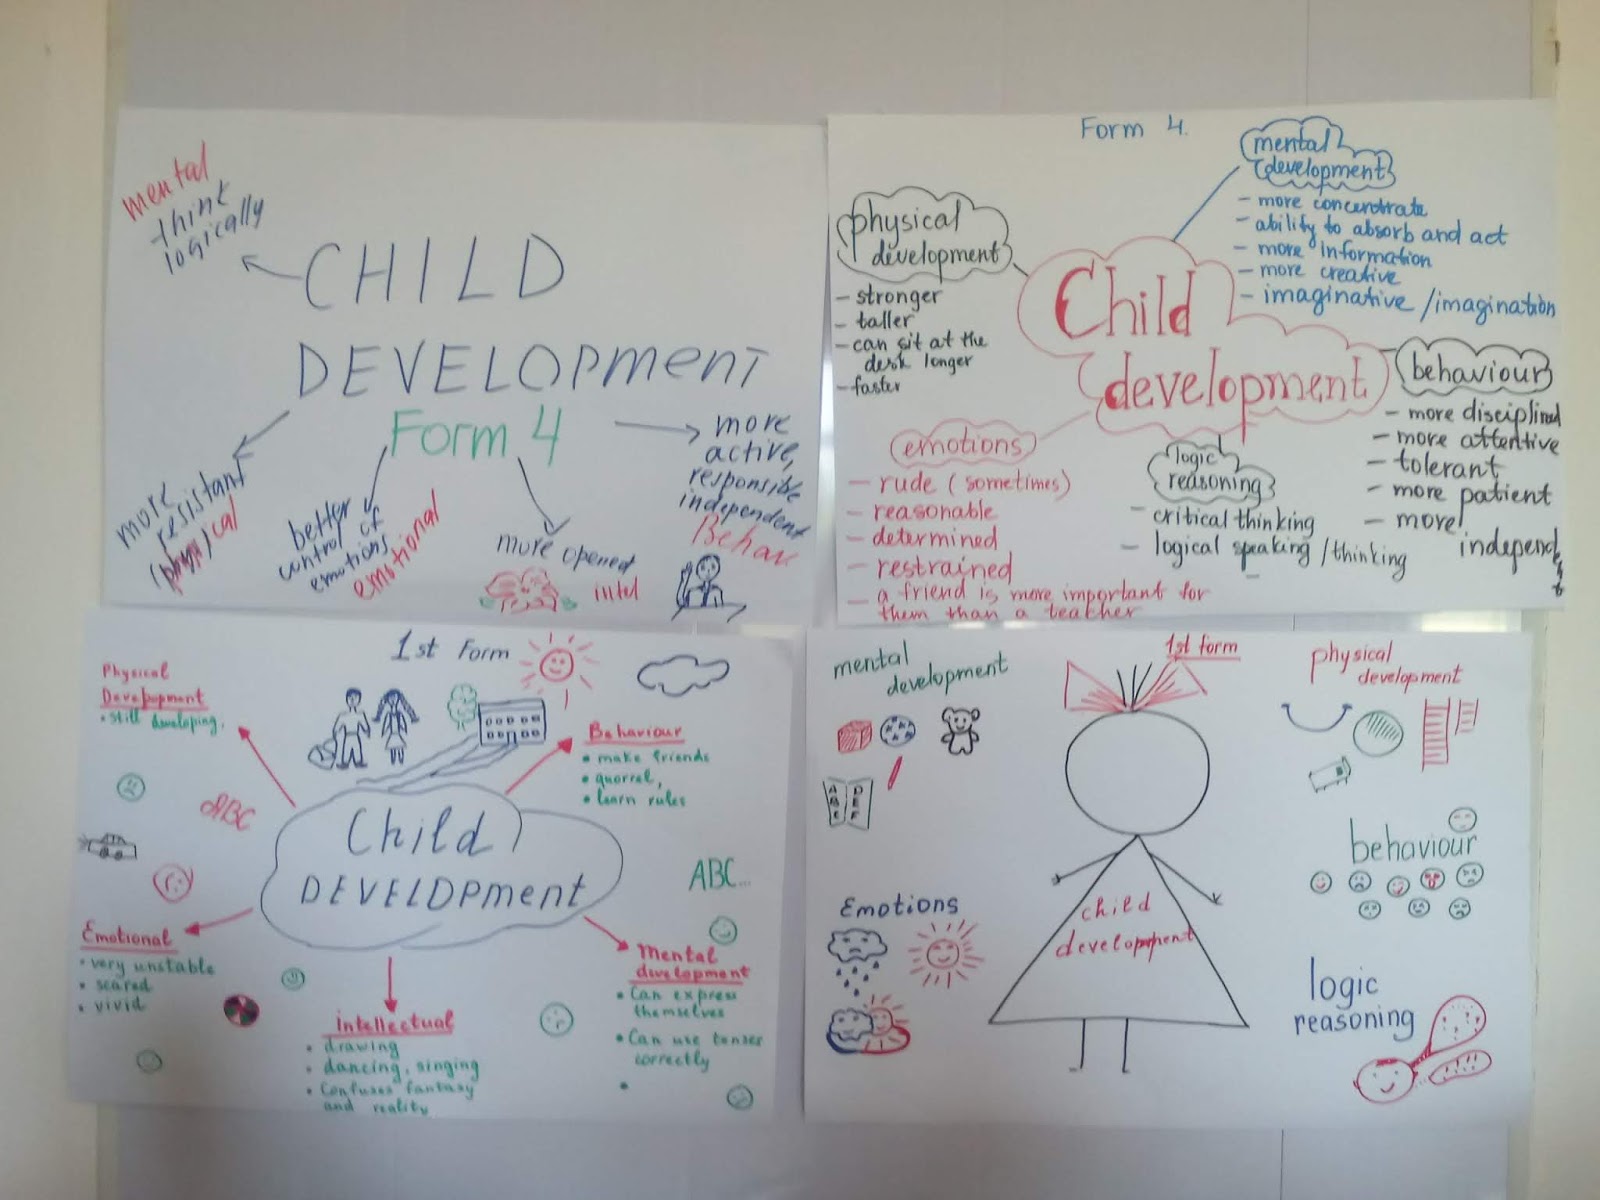 mental
think
logically
CHILD
DEVELOPMENT
Form 4
more
resistant
physical
better
control of
emotions
emotional
more opened
intel
more
active,
responsible
independent
Behav
Form 4.
mental
development
- more concentrate
- ability to absorb and act
- more information
- more creative
- imaginative / imagination
physical
development
- stronger
- taller
- can sit at the
desk longer
- faster
Child
development
behaviour
- more disciplined
- more attentive
- tolerant
- more patient
- more
independent
emotions
- rude (sometimes)
- reasonable
- determined
- restrained
- a friend is more important for
them than a teacher
logic
reasoning
- critical thinking
- logical speaking / thinking
1st Form
Physical
Development
• still developing,
Behaviour
• make friends
• quorrel,
• learn rules
ABC
Child
DEVELOPment
ABC...
Emotional
• very unstable
• scared
• vivid
Intellectual
• drawing
• dancing, singing
• Confuses fantasy
and reality
Mental
development
• Can express
themselves
• Can use tenses
correctly
•
1st form
mental
development
physical
development
behaviour
Emotions
child
development
logic
reasoning